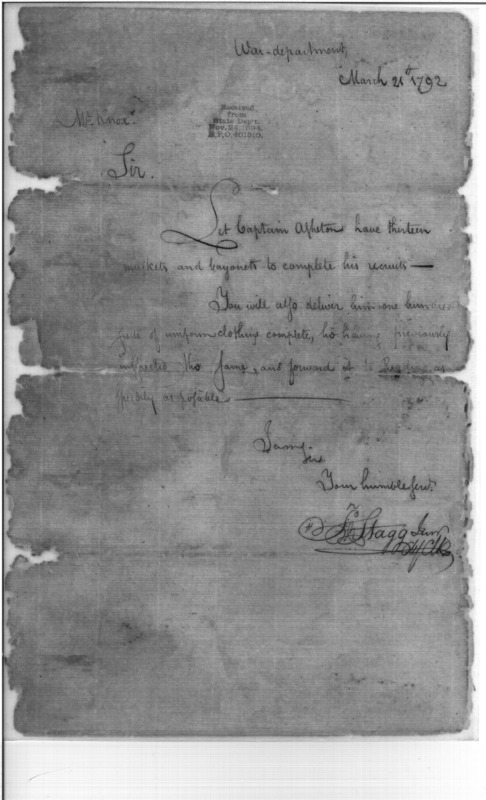 War-department,
March 21st 1792
Mr. Knox.
Received
from
State Dept.
Nov. 24, 1894.
R.P.O. 401,010.
Sir.
Let Captain Asheton have thirteen
muskets and bayonets to complete his recruits —
You will also deliver him one hundred
suits of uniform clothing complete, he having previously
inspected the same, and forward it to as
speedily as possible
I am,
Sir
Your humble Servt.
Jno Stagg Junr
Chf Clk.